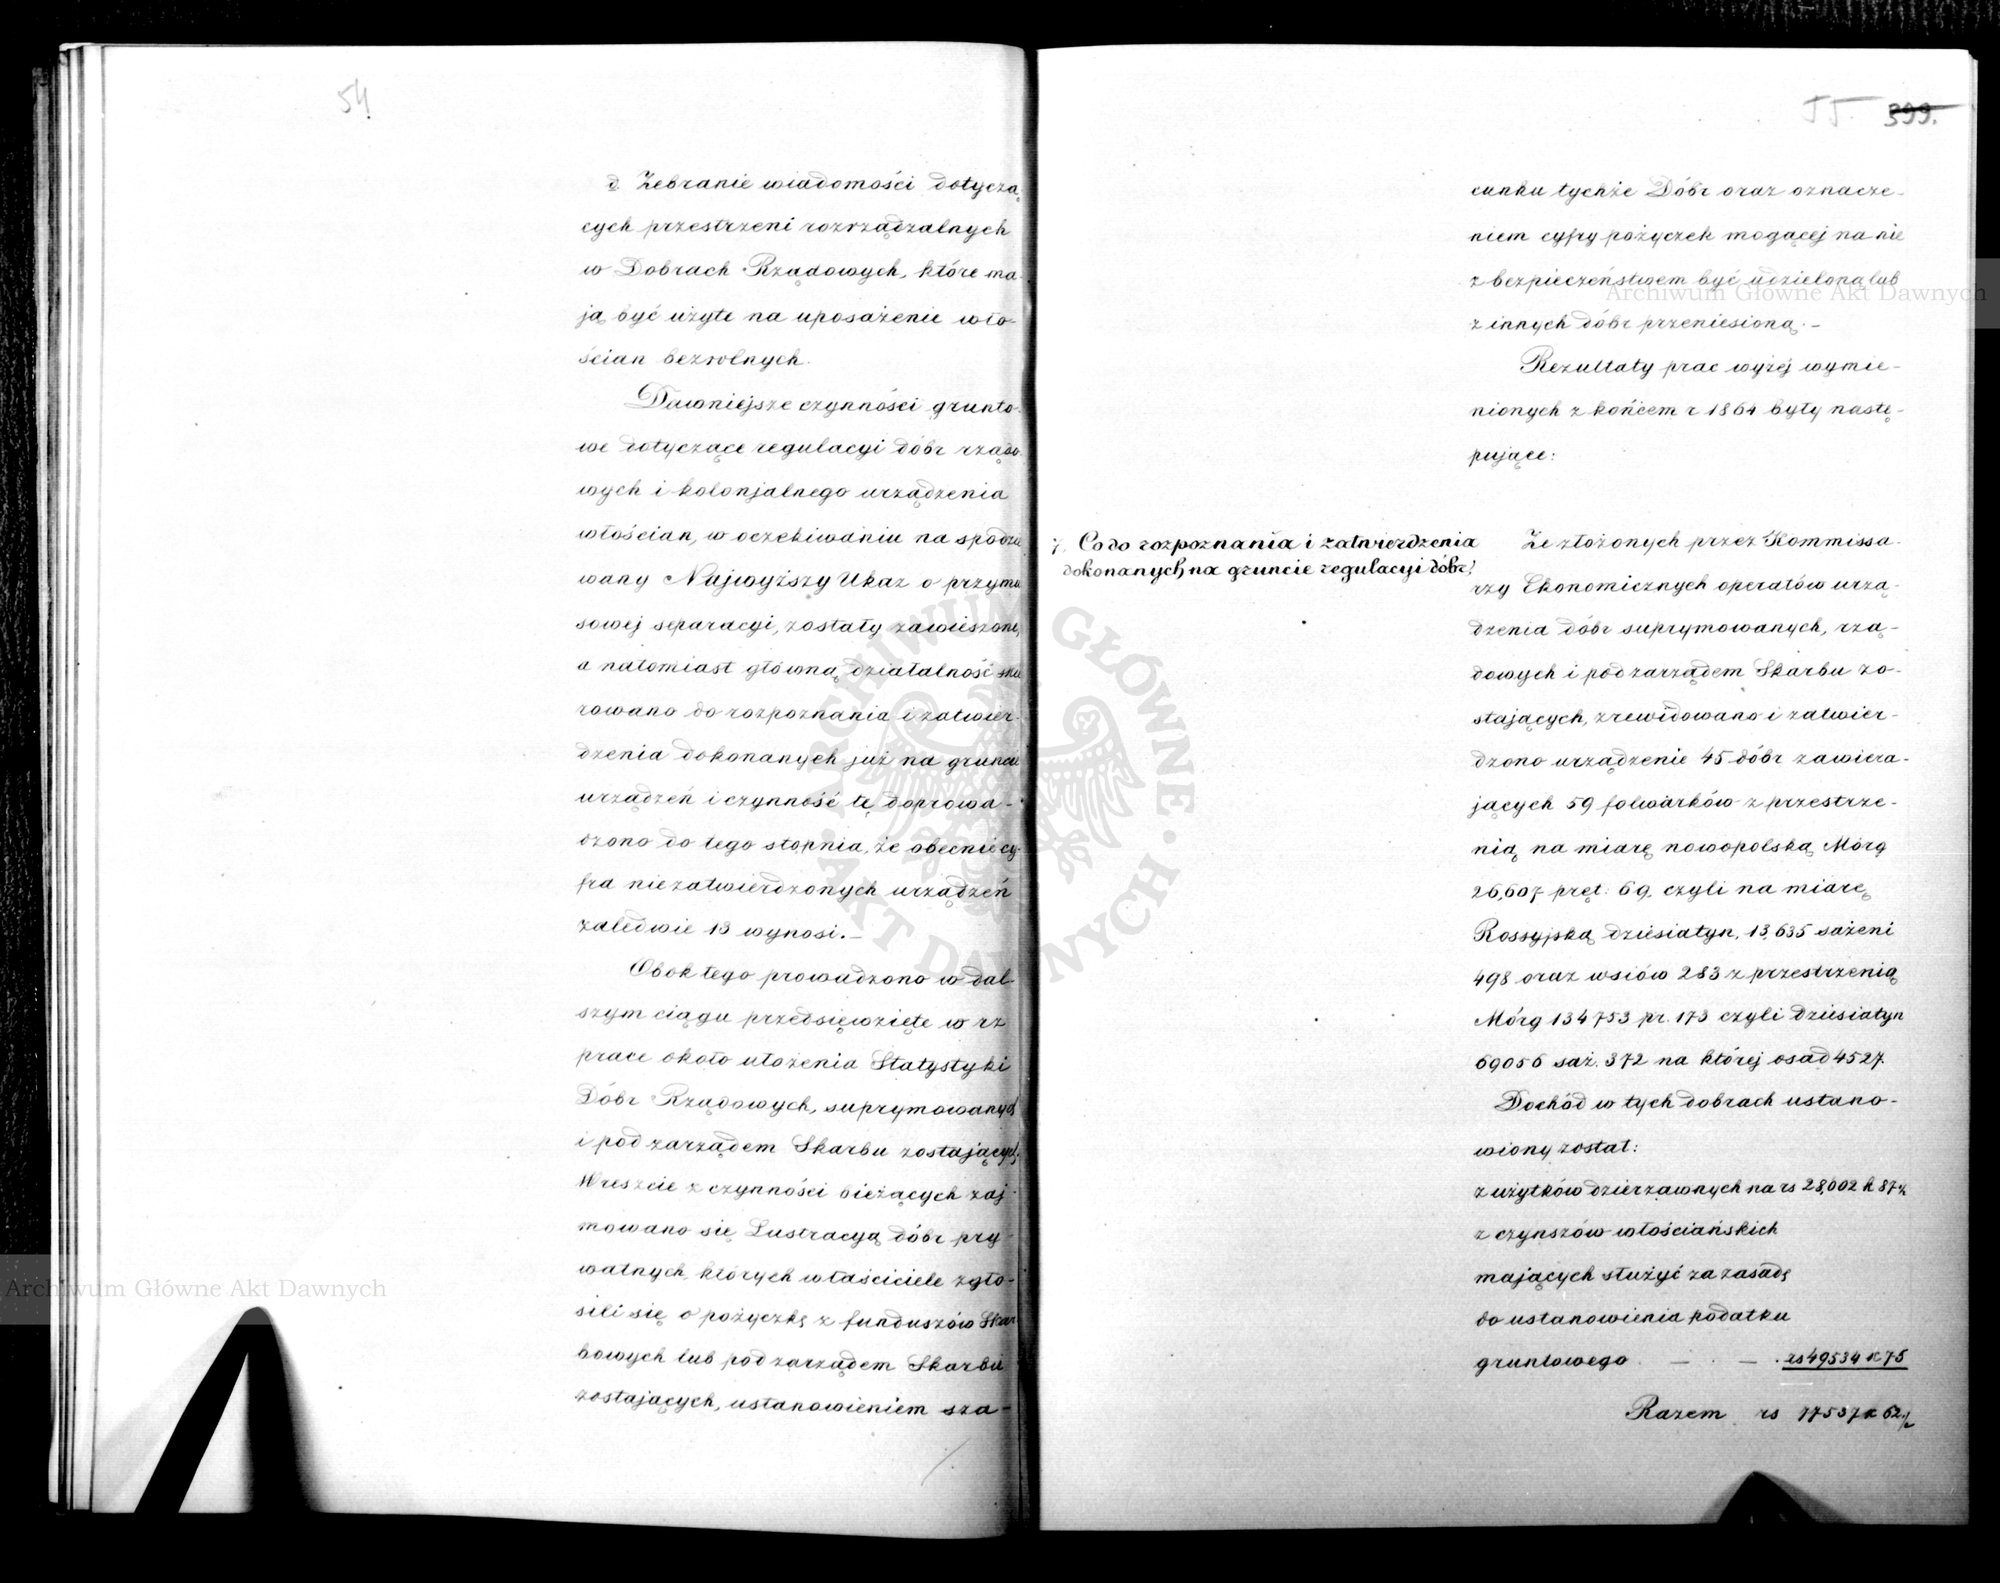 54
d. Zebranie wiadomości dotyczą
cych przestrzeni rozrządzalnych
w Dobrach Rządowych, które ma
ją być użyte na uposażenie wło-
ścian bezrolnych.
Dawniejsze czynności grunto-
we dotyczące regulacyi dóbr rządo
wych i kolonjalnego urządzenia
włościan, w oczekiwaniu na spodzie
wany Najwyższy Ukaz o przymu
sowej separacyi, zostały zawieszone,
a natomiast główną działalność skie
rowano do rozpoznania i zatwier-
dzenia dokonanych już na gruncie
urządzeń i czynność tę doprowa-
dzono do tego stopnia, że obecnie cy-
fra niezatwierdzonych urządzeń
zaledwie 13 wynosi.—
Obok tego prowadzono w dal-
szym ciągu przedsięwzięte w rz
prace około ułożenia Statystyki
Dóbr Rządowych, suprymowanych
i pod zarządem Skarbu zostających.
Wreszcie z czynności bieżących zaj-
mowano się Lustracyą dóbr pry-
watnych, których właściciele zgło-
sili się o pożyczkę z funduszów Skar
bowych lub pod zarządem Skarbu
zostających, ustanowieniem sza-
55. 399.
cunku tychże Dóbr oraz oznacze-
niem cyfry pożyczek mogącej na nie
z bezpieczeństwem być udzieloną lub
z innych dóbr przeniesioną.—
Rezultaty prac wyżej wymie-
nionych z końcem r 1864 były nastę-
pujące:
7. Co do rozpoznania i zatwierdzenia
dokonanych na gruncie regulacyi dóbr:
Ze złożonych przez Kommissa-
rzy Ekonomicznych operatów urzą-
dzenia dóbr suprymowanych, rzą-
dowych i pod zarządem Skarbu zo-
stających, zrewidowano i zatwier-
dzono urządzenie 45 dóbr zawiera-
jących 59 folwarków z przestrze-
nią na miarę nowopolską Mórg
26,607 pręt: 69, czyli na miarę
Rossyjską dziesiatyn, 13,635 sażeni
498 oraz wsiów 283 z przestrzenią
Mórg 134753 pr. 173 czyli dziesiatyn
69056 saż. 372 na której osad 4527.
Dochód w tych dobrach ustano-
wiony został:
z użytków dzierżawnych na rs 28,002 k 87½
z czynszów włościańskich
mających służyć za zasadę
do ustanowienia podatku
gruntowego . — . — . rs 49534 k 75
Razem rs 77537 k 62½
Archiwum Główne Akt Dawnych
Archiwum Główne Akt Dawnych
ARCHIWUM GŁÓWNE · AKT DAWNYCH ·